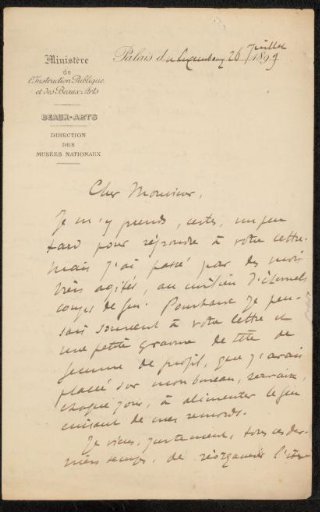 Ministère
de
l'Instruction Publique
et des Beaux-Arts
BEAUX-ARTS
DIRECTION
DES
MUSÉES NATIONAUX
Palais du Luxembourg 26 Juillet 1899
Cher Monsieur,
Je m'y prends, certes, un peu
tard pour répondre à votre lettre
mais j'ai passé par des mois
très agités, au milieu d'éternels
coups de feu. Pourtant je pen-
sais souvent à votre lettre et
une petite gravure de tête de
femme de profil, que j'avais
placée sur mon bureau, servait,
chaque jour, à alimenter le feu
cuisant de mes remords.
Je viens, justement, tous ces der-
niers temps, de réorganiser